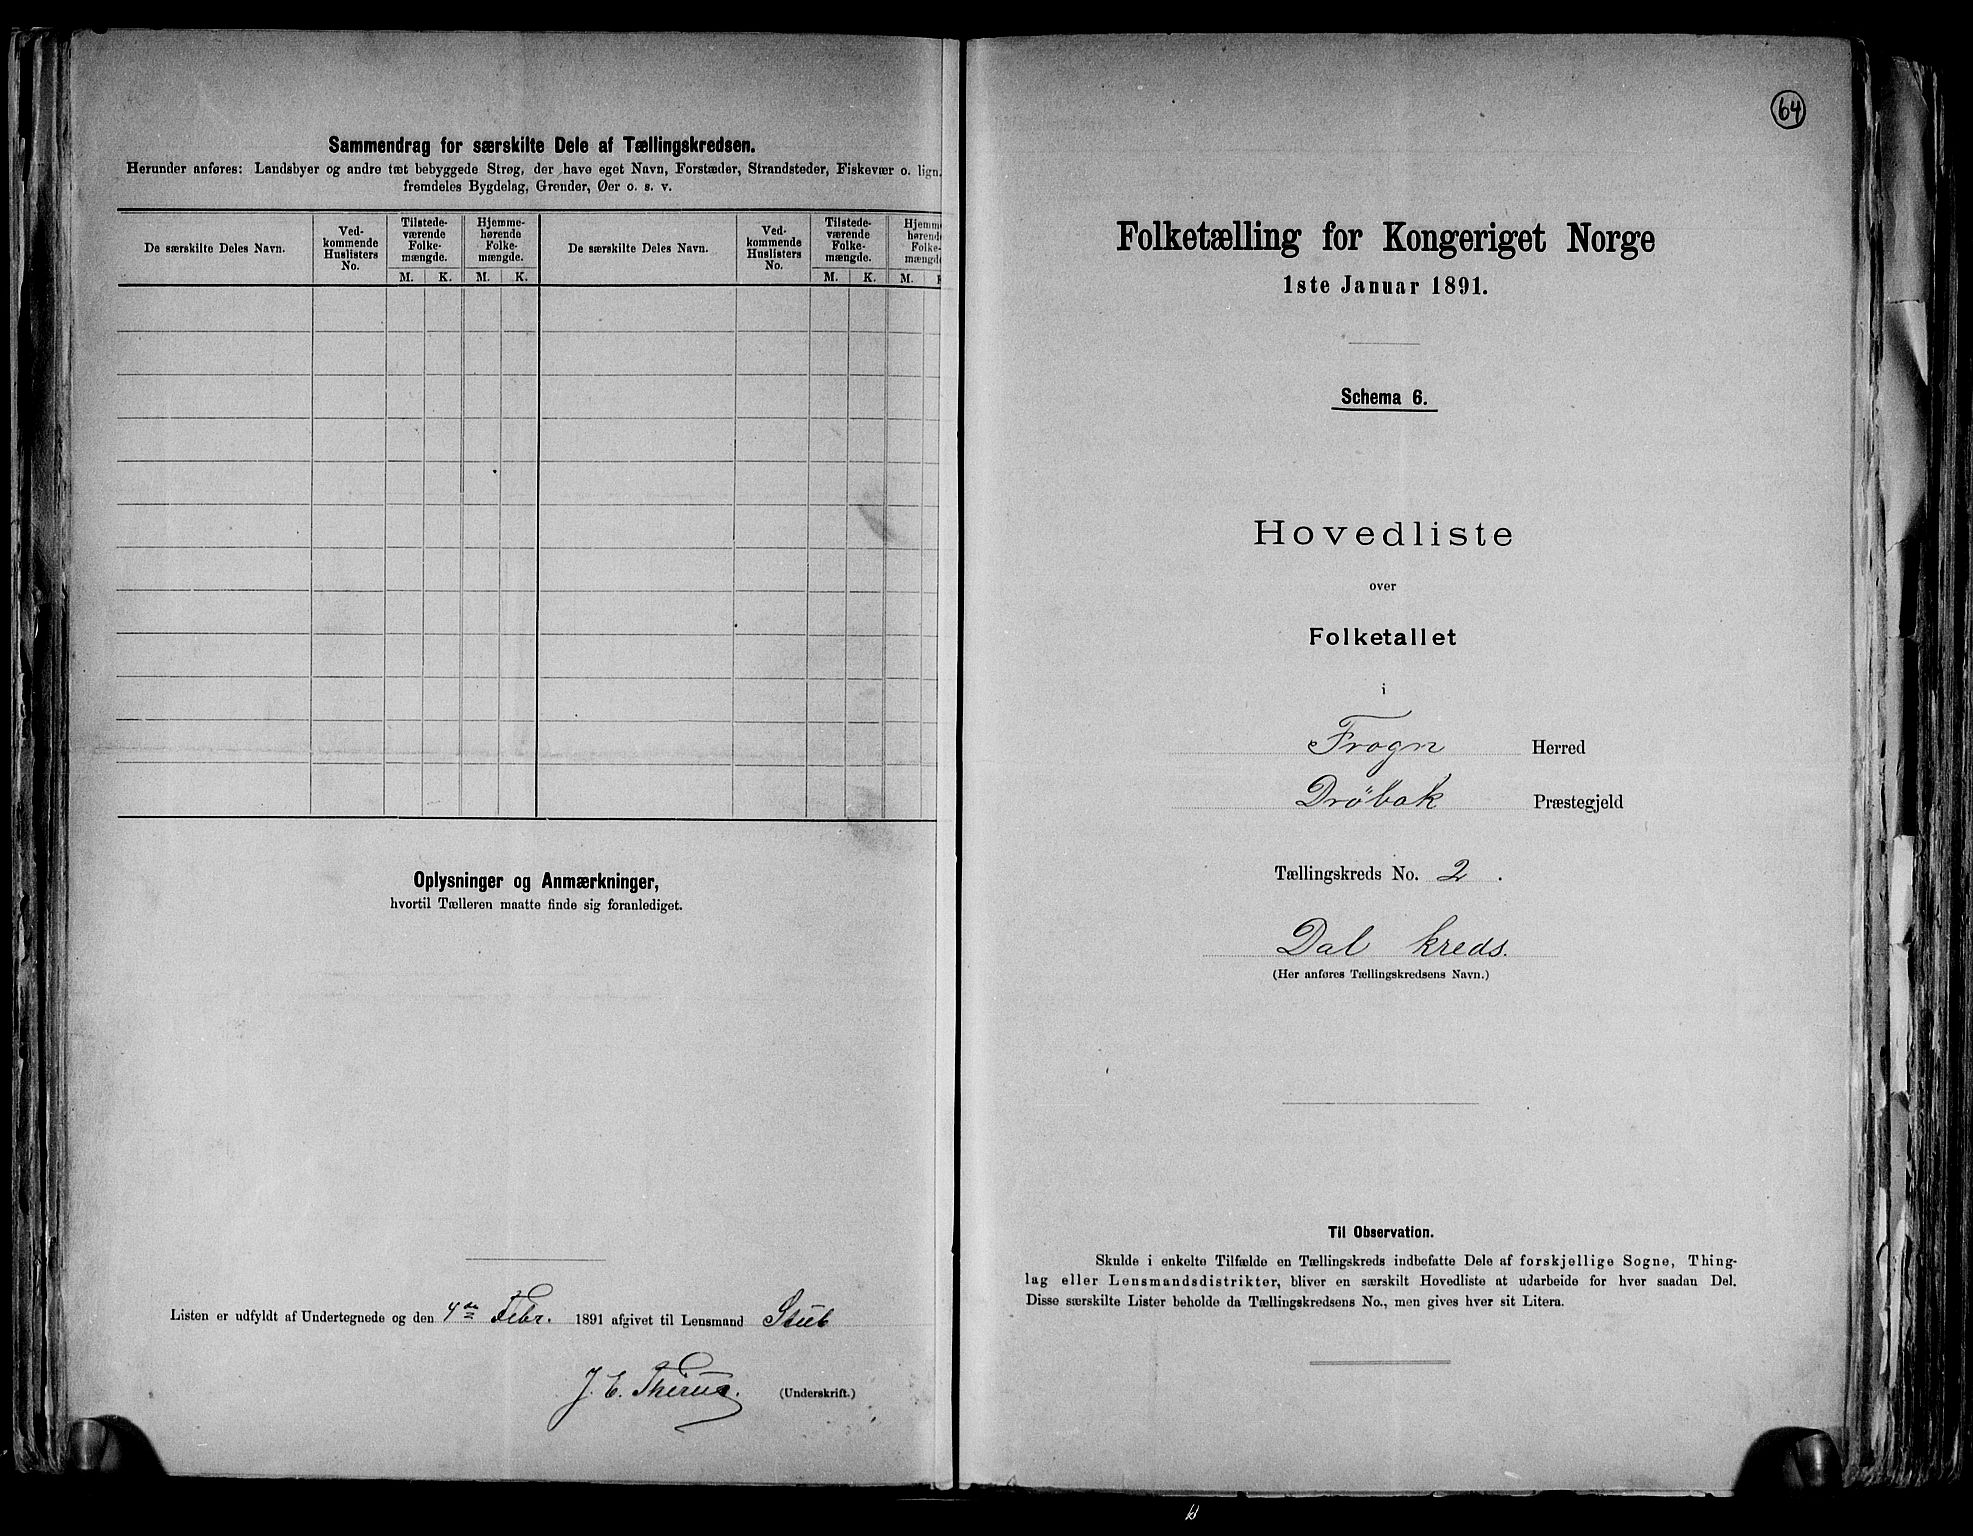 Sammendrag for særskilte Dele af Tællingskredsen.
Herunder anføres: Landsbyer og andre tæt bebyggede Strøg, der have eget Navn, Forstæder, Strandsteder, Fiskevær o. lign.
fremdeles Bygdelag, Grender, Øer o. s. v.
De særskilte Deles Navn.
Ved-
kommende
Huslisters
No.
Tilstede-
værende
Folke-
mængde.
M. K.
Hjemme-
hørende
Folke-
mængde.
M. K.
De særskilte Deles Navn.
Ved-
kommende
Huslisters
No.
Tilstede-
værende
Folke-
mængde.
M. K.
Hjemm
hørend
Folke-
mængd
M.
Oplysninger og Anmærkninger,
hvortil Tælleren maatte finde sig foranlediget.
Listen er udfyldt af Undertegnede og den 4de Febr. 1891 afgivet til Lensmand Stub
J. E. (Underskrift.)
64
Folketælling for Kongeriget Norge
1ste Januar 1891.
Schema 6.
Hovedliste
over
Folketallet
i
Frogn Herred
Drøbak Præstegjeld
Tællingskreds No. 2.
Dal kreds.
(Her anføres Tællingskredsens Navn.)
Til Observation.
Skulde i enkelte Tilfælde en Tællingskreds indbefatte Dele af forskjellige Sogne, Thing-
lag eller Lensmandsdistrikter, bliver en særskilt Hovedliste at udarbeide for hver saadan Del.
Disse særskilte Lister beholde da Tællingskredsens No., men gives hver sit Litera.